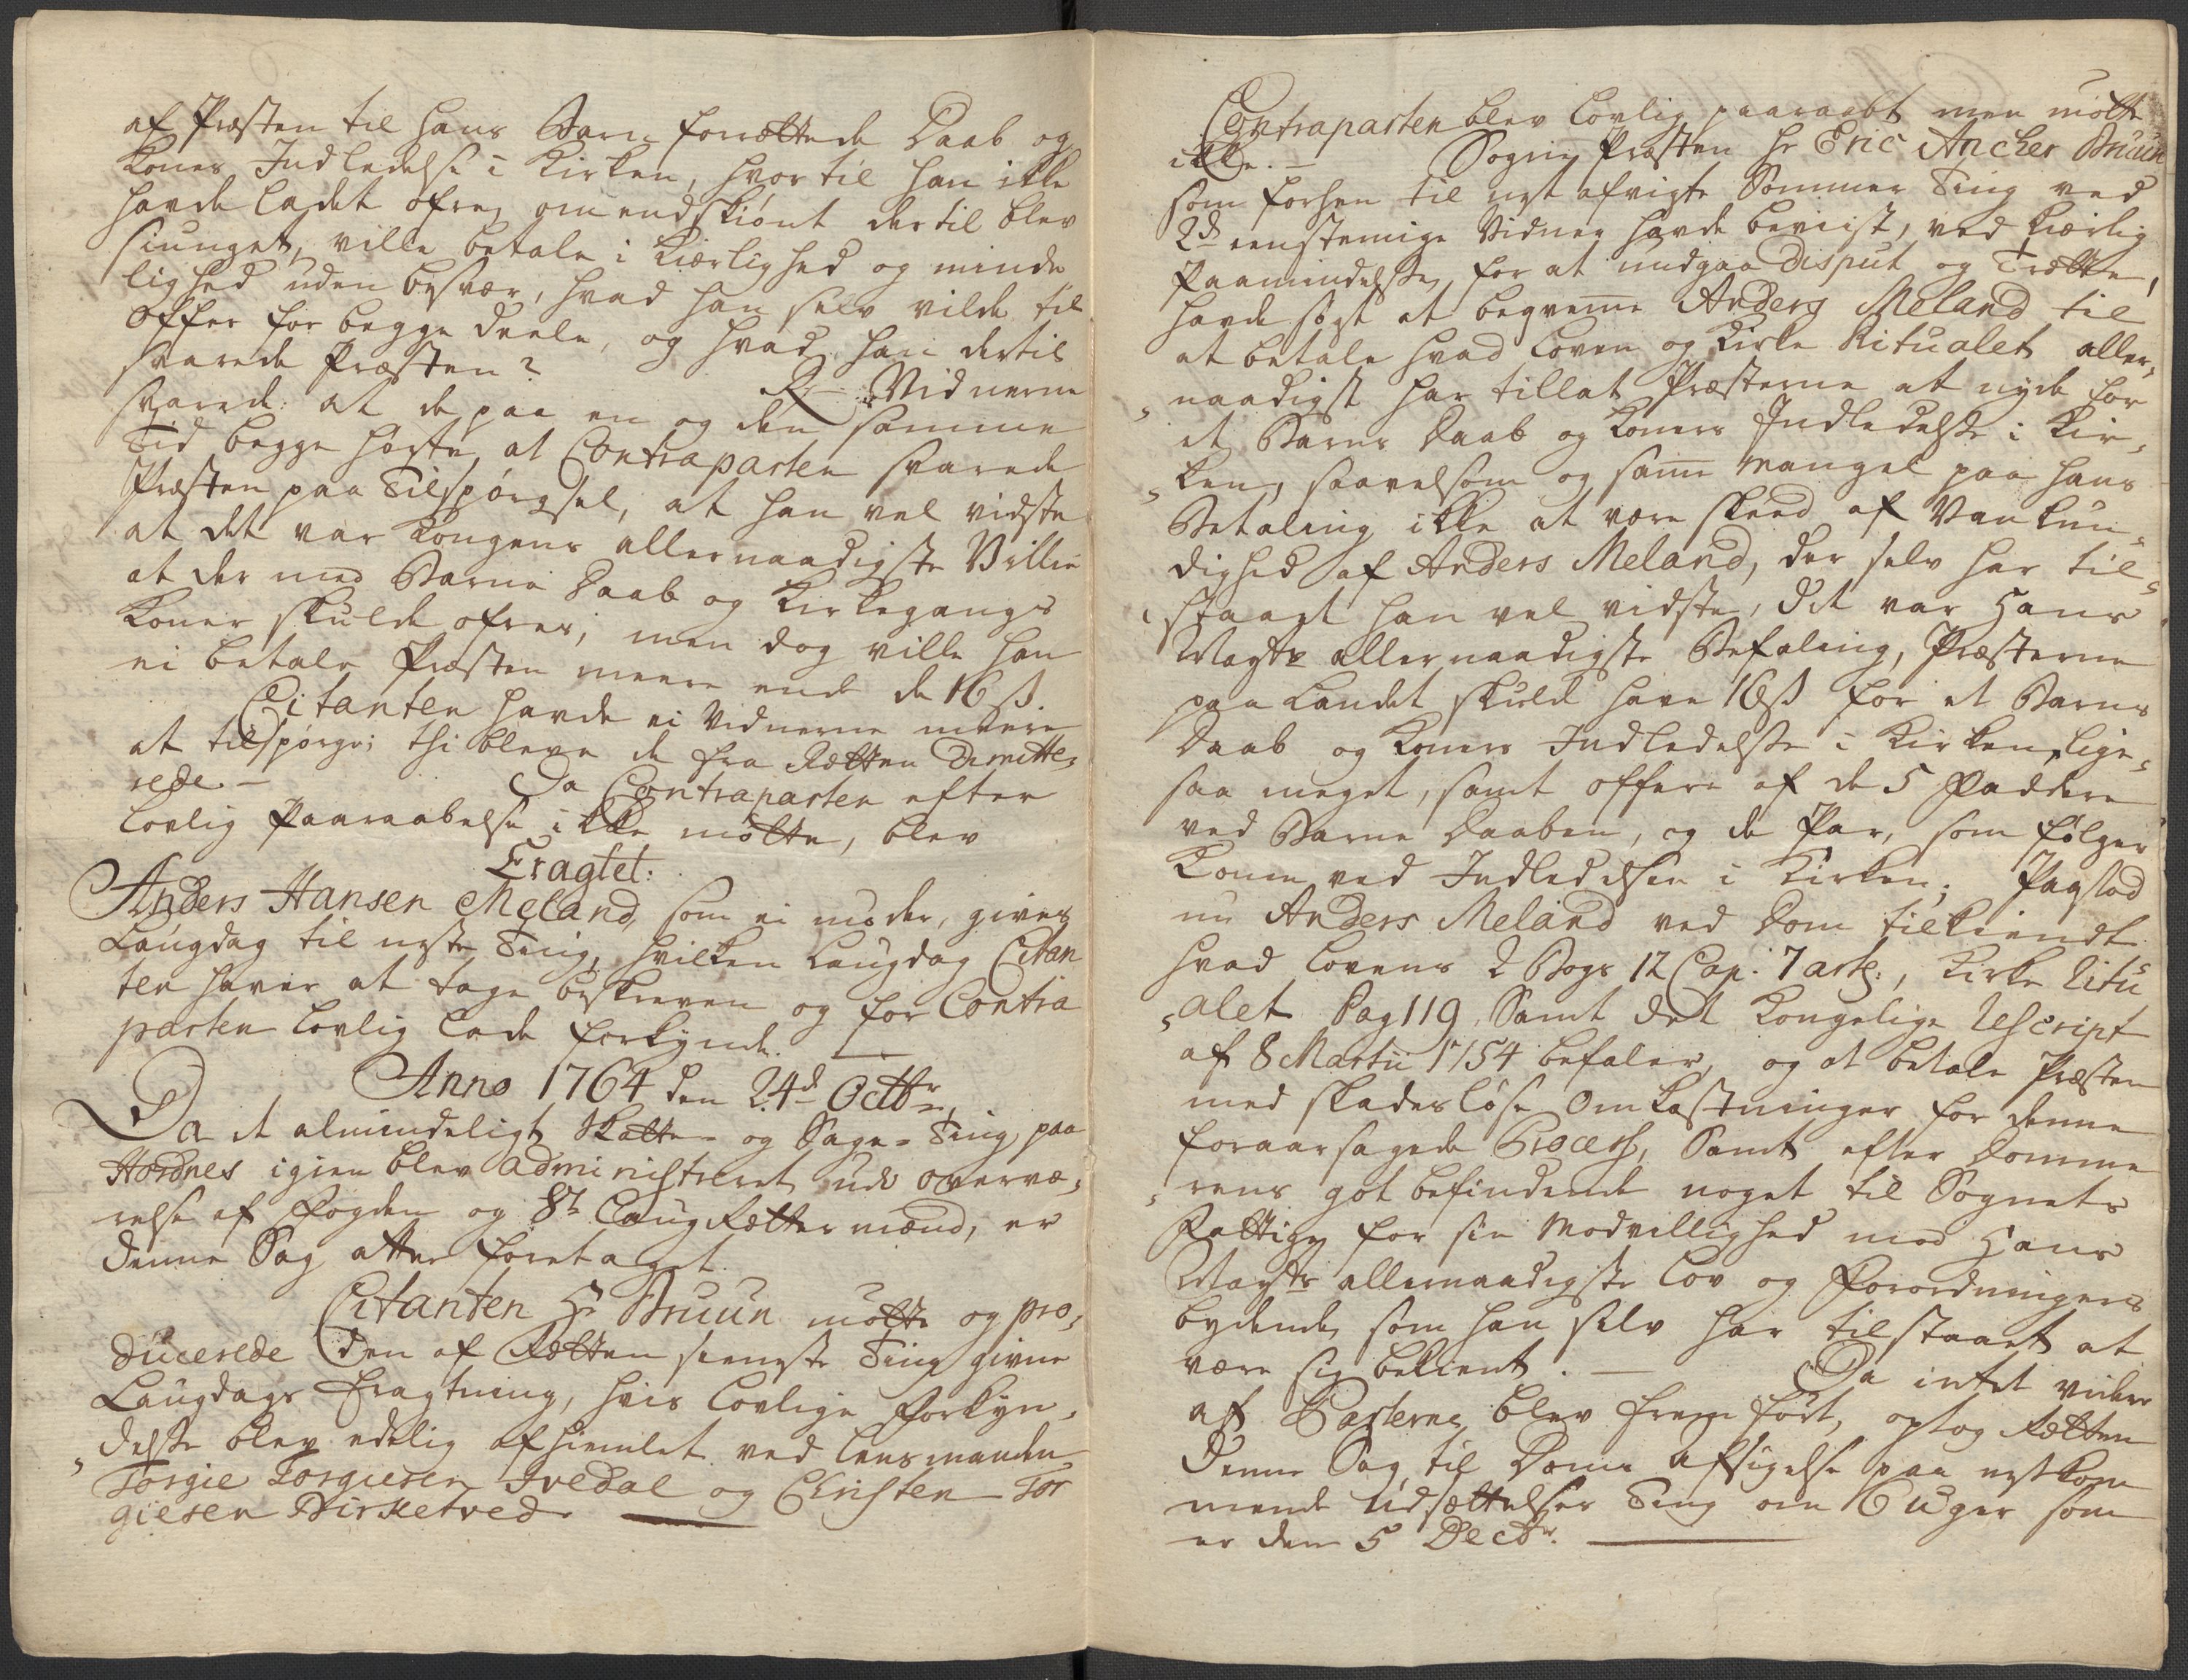 af Præsten til hans Barn forrættede Daab og
Kones Indledelse i Kirken, hvortil han ikke
havde ladet ofre, omendskiønt dertil blev
siunget, ville betale i Kiærlighed og minde
lighed uden besvær, hvad han selv vilde til
Offer for begge Deele, og hvad han dertil
svarede Præsten? R: Vidnerne
svarede: at de paa en og den samme
Tid begge hørte, at Contraparten svarede
Præsten paa Tilspørgsel, at han vel vidste
at det var Kongens allernaadigste Villie
at der med Barne Daab og Kirkegangs
Koner skulde ofres, men dog ville han
ei betale Præsten meere end de 16 ß.
Citanten havde ei Vidnerne meere
at tilspørge; thi bleve de fra Rætten Dimitte,
rede. – Da Contraparten efter
lovlig Paaraabelse ikke mötte, blev
Eragtet:
Anders Hansen Meland, som ei møder, gives
Laugdag til neste Ting, hvilken Laugdag Citan
ten haver at tage beskreven og for Contra
parten lovlig lade forkynde.
Anno 1764 den 24d Octbr
Da et almindeligt Skatte- og Sage-Ting paa
Hordnes igien blev administreret udi overvæ,
relse af Fogden og 8t Laug Rættesmænd, er
denne Sag atter foretaget.
Citanten Hr Bruun mötte og pro,
ducerede den af Rætten sieneste Ting givne
Laugdags Eragtning, hvis lovlige Forkyn,
„delse blev edelig afhiemlet ved Lensmanden
Torgie Torgiesen Ivedal og Christen Tor
giesen Birketved
Contraparten blev lovlig paaraabt men mötte
ikke. – Sogne Præsten Hr Eric Ancher Bruun
som forhen til nest afvigte Sommer Ting ved
2de eenstemige Vidner havde beviist, ved Kiærlig
Paamindelse, for at undgaa Disput og Trætte,
havde søgt at beqvemme Anders Meland til
at betale hvad Loven og Kirke Ritualet aller,
„naadigst har tillat Præsterne at nyde for
et Barns Daab og Koners Indledelse i Kir,
„ken, saavelsom og samme Mangel paa hans
Betaling ikke at være skeed af Vankun,
dighed af Anders Meland, der selv har til,
„staaet han vel vidste, det var Hans
Mayts allernaadigste Befaling, Præsterne
paa Landet skuld have 16 ß for et Barns
Daab og Koners Indledelse i Kirken, lige,
saa meget, samt offere af de 5 Faddere
ved Barne Daaben, og de Par, som følger
Konen ved Indledelsen i Kirken; Paastod
nu Anders Meland ved Dom tilkiendt
hvad Lovens 2 Bogs 12 Cap: 7 artl:, Kirke Ritu
„alet Pag 119, Samt det Kongelige Rescript
af 8 Martii 1754 befaler, og at betale Præsten
med skadesløse Omkostninger for denne
foraarsagede Process, Samt efter Domme
„rens gotbefindende noget til Sognets
Fattige for sin Modvillighed mod Hans
Mayts allernaadigste Lov og Forordningers
bydende, som han selv har tilstaaet at
være sig bekient. – Da intet videre
af Parterne blev fremført, optog Rætten
denne Sag til Doms Afsigelse paa nestkom
mende Udsættelses Ting om 6 Uger som
er den 5 Decbr.